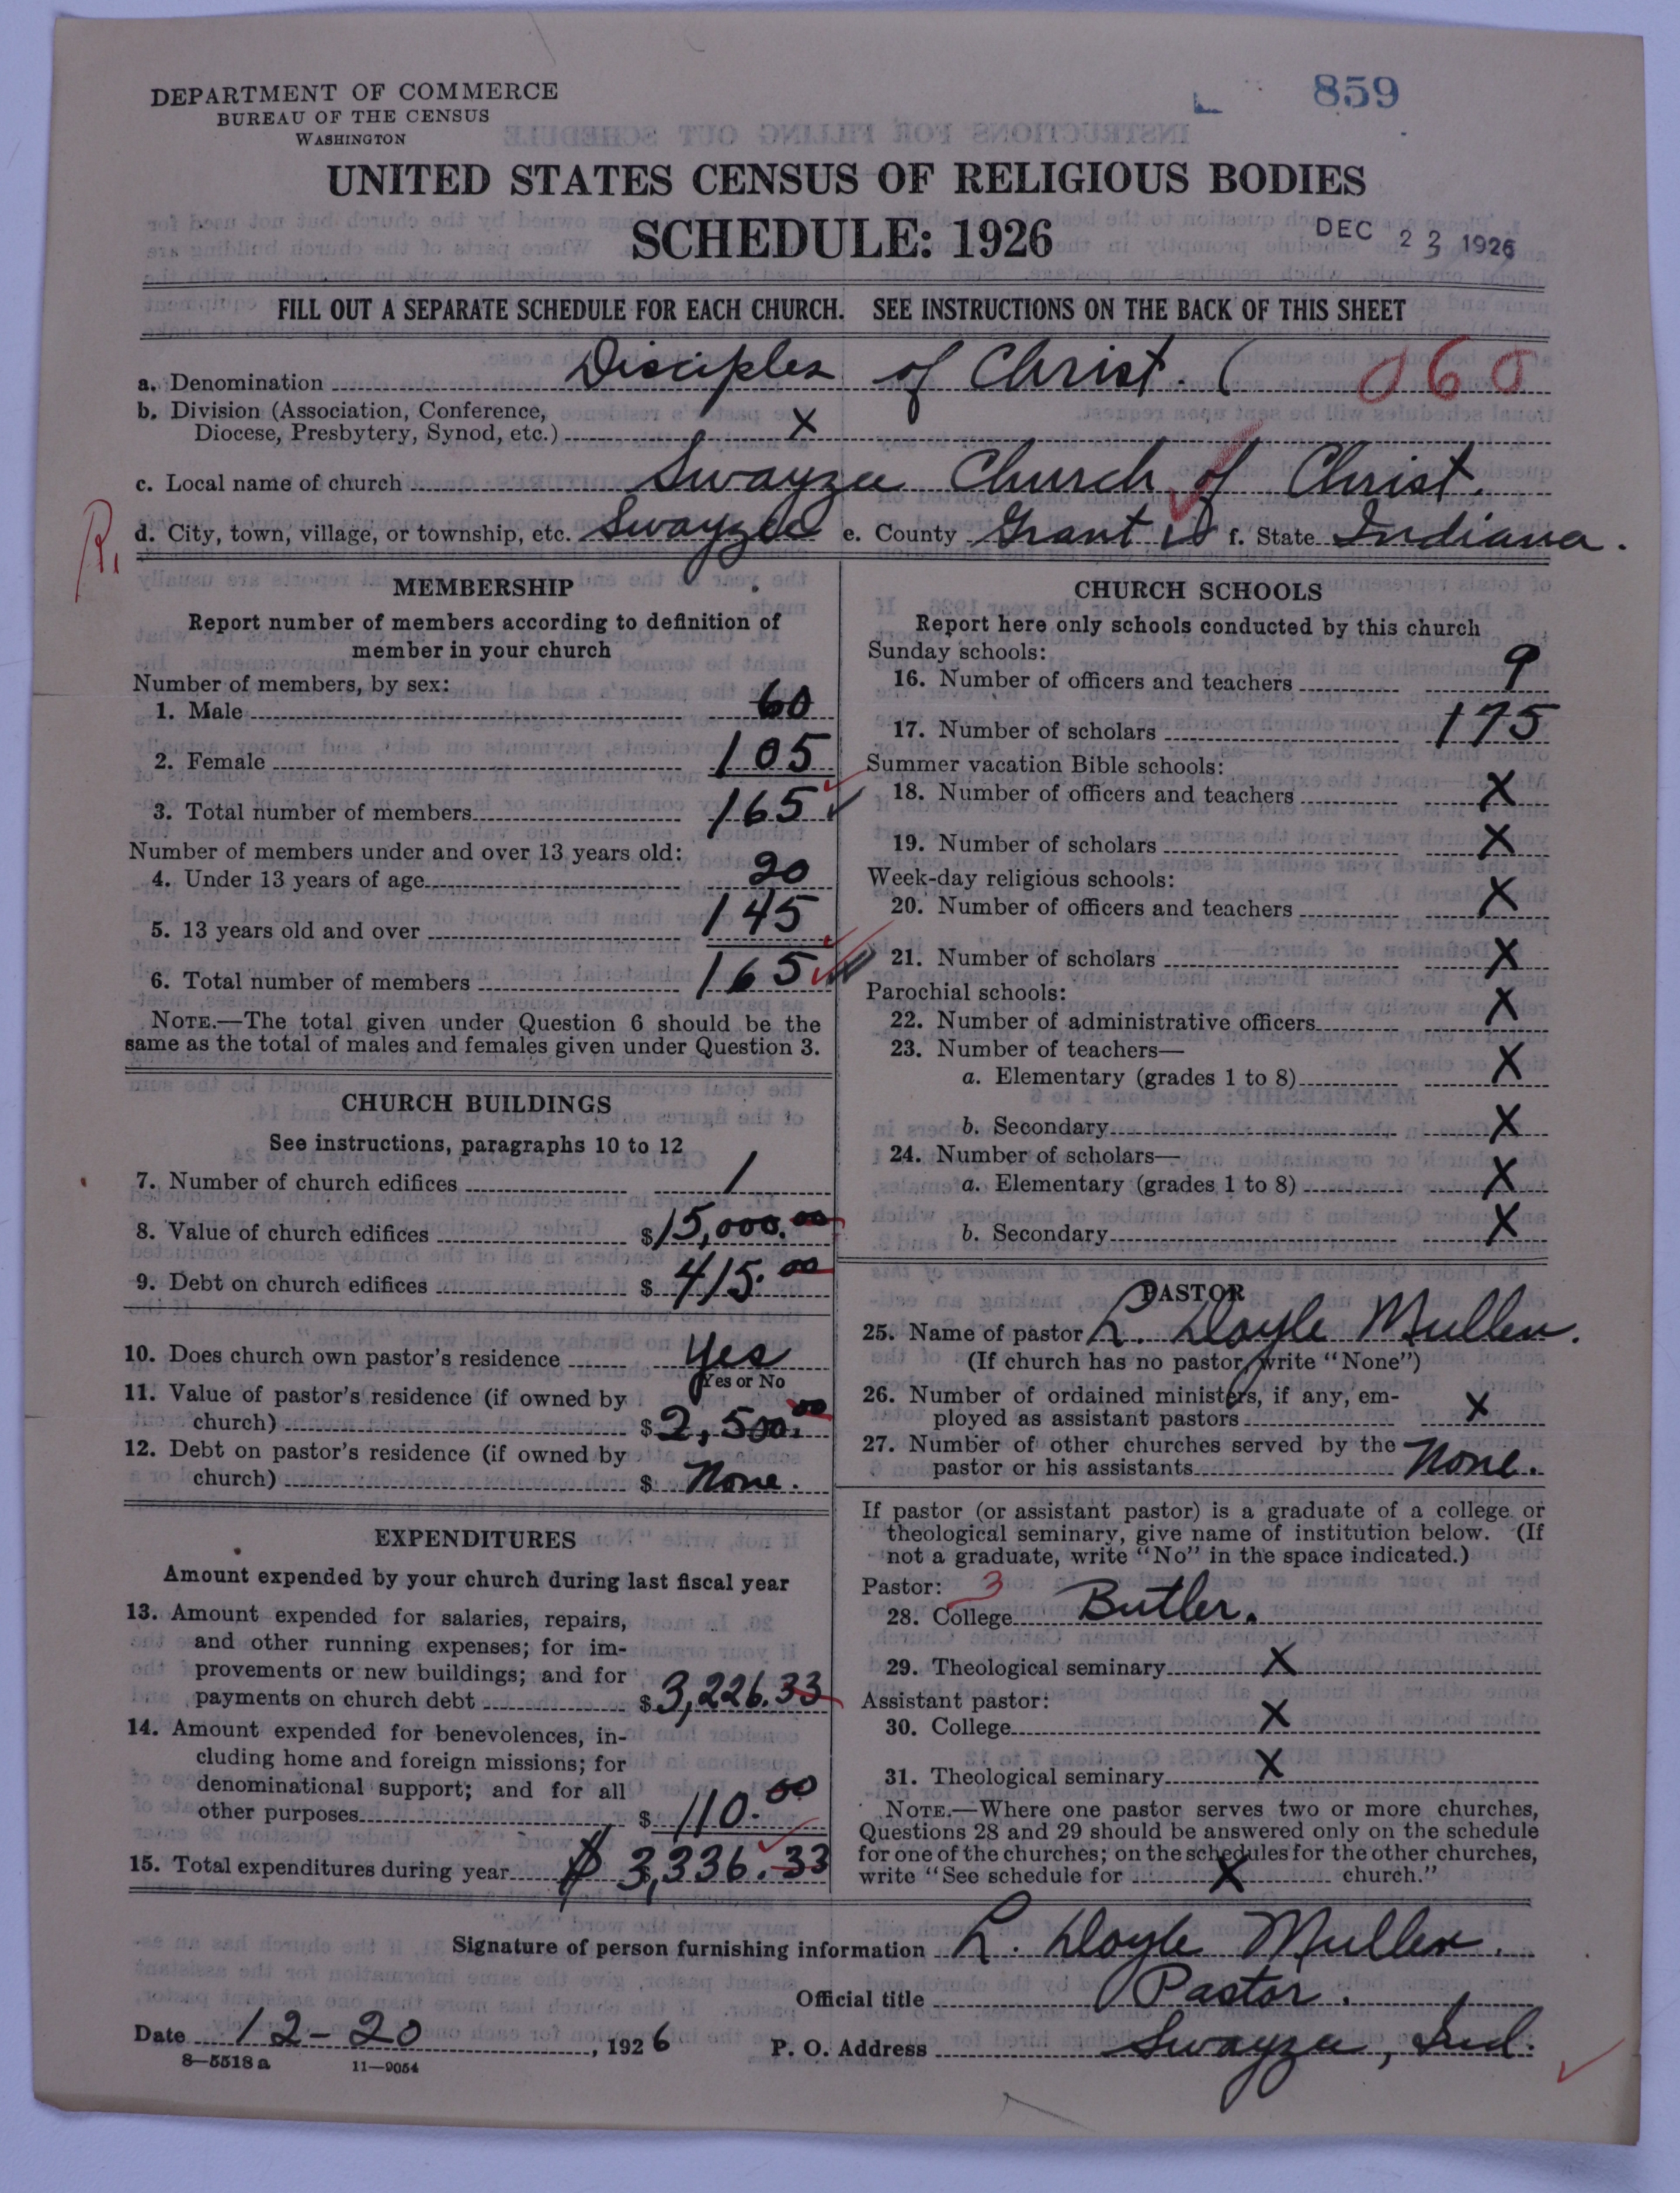 DEPARTMENT OF COMMERCE
BUREAU OF THE CENSUS
WASHINGTON
859
UNITED STATES CENSUS OF RELIGIOUS BODIES
SCHEDULE: 1926
DEC 23 1926
FILL OUT A SEPARATE SCHEDULE FOR EACH CHURCH. SEE INSTRUCTIONS ON THE BACK OF THIS SHEET
a. Denomination Disciples of Christ. ( 060
b. Division (Association, Conference,
Diocese, Presbytery, Synod, etc.) X
c. Local name of church Swayzee Church of Christ.
R.
d. City, town, village, or township, etc. Swayzee e. County Grant f. State Indiana.
MEMBERSHIP
Report number of members according to definition of
member in your church
Number of members, by sex:
1. Male 60
2. Female 105
3. Total number of members 165
Number of members under and over 13 years old:
4. Under 13 years of age 20
5. 13 years old and over 145
6. Total number of members 165
NOTE.—The total given under Question 6 should be the
same as the total of males and females given under Question 3.
CHURCH BUILDINGS
See instructions, paragraphs 10 to 12
7. Number of church edifices 1
8. Value of church edifices $15,000.00
9. Debt on church edifices $ 415.00
10. Does church own pastor's residence Yes
Yes or No
11. Value of pastor's residence (if owned by
church) $2,500.00
12. Debt on pastor's residence (if owned by
church) $ None.
EXPENDITURES
Amount expended by your church during last fiscal year
13. Amount expended for salaries, repairs,
and other running expenses; for im-
provements or new buildings; and for
payments on church debt $3,226.33
14. Amount expended for benevolences, in-
cluding home and foreign missions; for
denominational support; and for all
other purposes $ 110.00
15. Total expenditures during year $ 3,336.33
CHURCH SCHOOLS
Report here only schools conducted by this church
Sunday schools:
16. Number of officers and teachers 9
17. Number of scholars 175
Summer vacation Bible schools:
18. Number of officers and teachers X
19. Number of scholars X
Week-day religious schools:
20. Number of officers and teachers X
21. Number of scholars X
Parochial schools:
22. Number of administrative officers X
23. Number of teachers—
a. Elementary (grades 1 to 8) X
b. Secondary X
24. Number of scholars—
a. Elementary (grades 1 to 8) X
b. Secondary X
PASTOR
25. Name of pastor L. Doyle Mullen.
(If church has no pastor, write "None")
26. Number of ordained ministers, if any, em-
ployed as assistant pastors X
27. Number of other churches served by the
pastor or his assistants None.
If pastor (or assistant pastor) is a graduate of a college or
theological seminary, give name of institution below. (If
not a graduate, write "No" in the space indicated.)
Pastor: 3
28. College Butler.
29. Theological seminary X
Assistant pastor:
30. College X
31. Theological seminary X
NOTE.—Where one pastor serves two or more churches,
Questions 28 and 29 should be answered only on the schedule
for one of the churches; on the schedules for the other churches,
write "See schedule for X church."
Signature of person furnishing information L. Doyle Mullen.
Official title Pastor.
Date 12-20, 1926 P. O. Address Swayzee, Ind.
8—5518a 11—9054